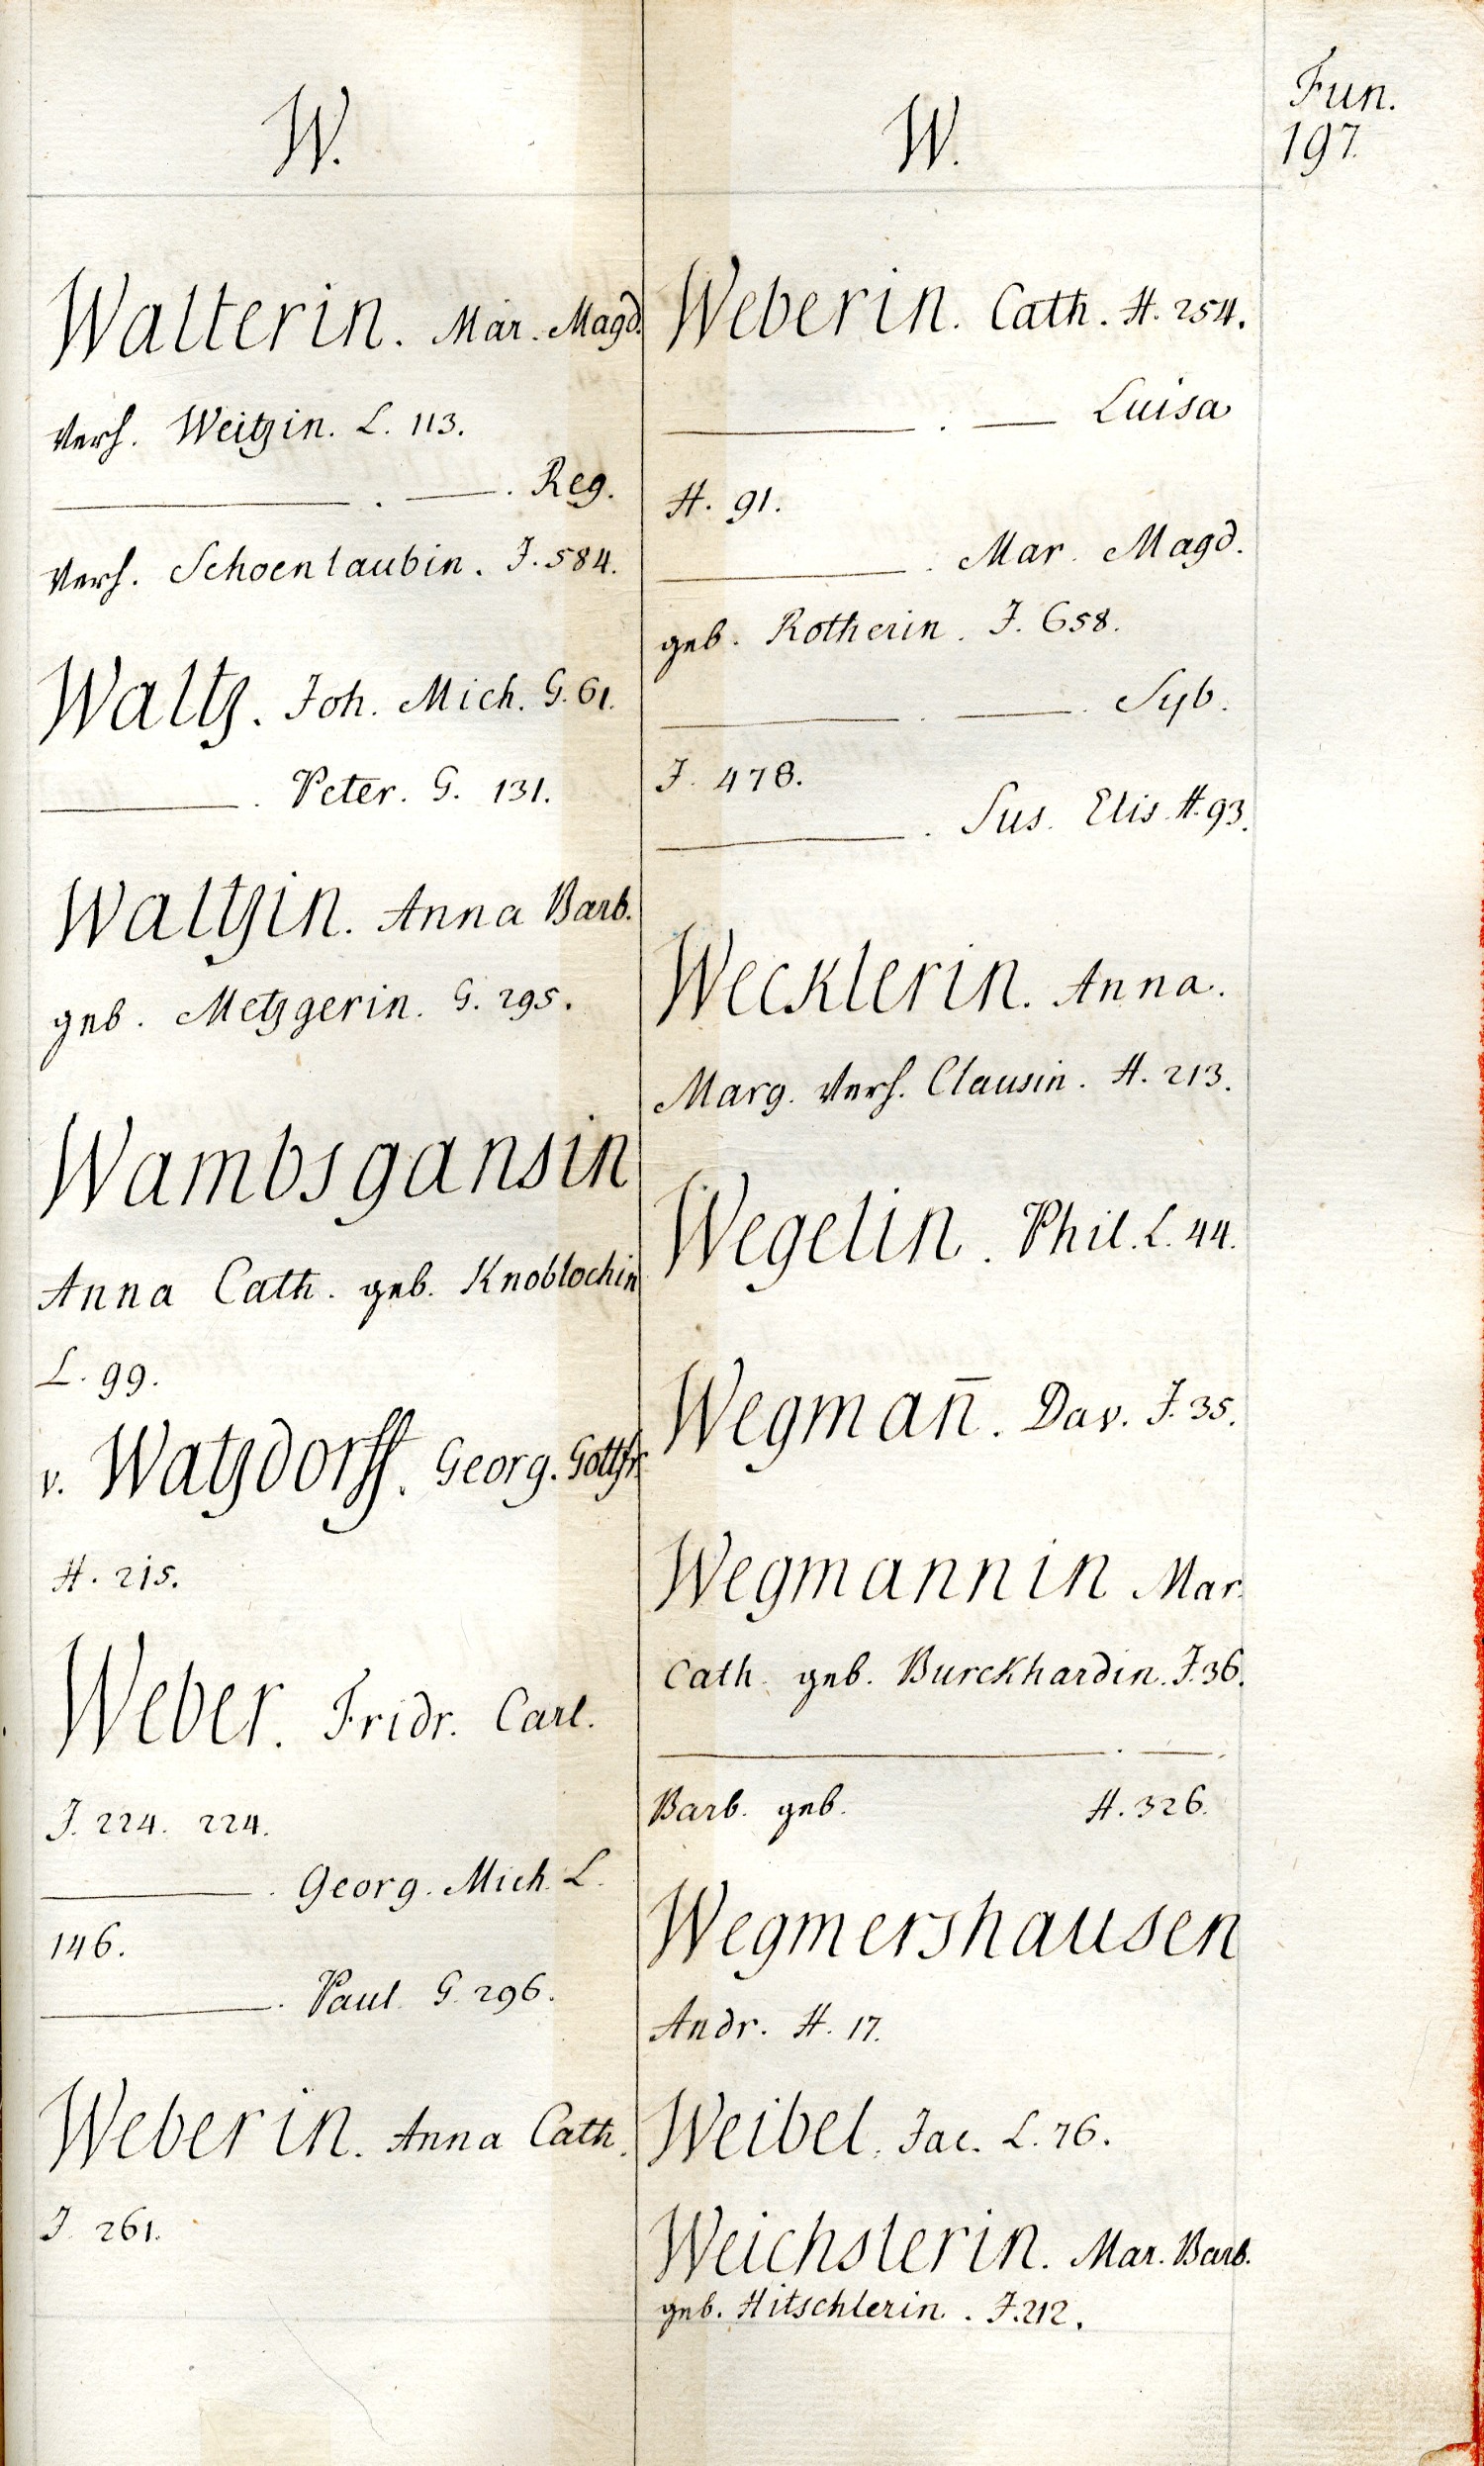 W.
Walterin. Mar. Magd.
verh. Weitzin. L. 113.
——— . ——. Reg.
verh. Schoenlaubin. J. 584.
Waltz. Joh. Mich. G. 61.
———. Peter. G. 131.
Waltzin. Anna Barb.
geb. Metzgerin. G. 295.
Wambsgansin
Anna Cath. geb. Knoblochin
L. 99.
v. Watzdorff. Georg. Gottfr.
H. 215.
Weber. Fridr. Carl.
J. 224. 224.
———. Georg. Mich. L.
146.
———. Paul. G. 296.
Weberin. Anna Cath.
J. 261.
W.
Weberin. Cath. H. 254.
——— . —— Luisa
H. 91.
———. Mar. Magd.
geb. Rotherin. J. 658.
——— . ——. Syb.
J. 478.
———. Sus. Elis. H. 93.
Wecklerin. Anna.
Marg. verh. Clausin. H. 213.
Wegelin. Phil. L. 44.
Wegman̄. Dav. J. 35.
Wegmannin Mar.
Cath. geb. Burckhardin. J. 36.
——— . ——.
Barb. geb. H. 326.
Wegmershausen
Andr. H. 17.
Weibel. Jac. L. 76.
Weichslerin. Mar. Barb.
geb. Hitschlerin. J. 212.
Fun.
197.